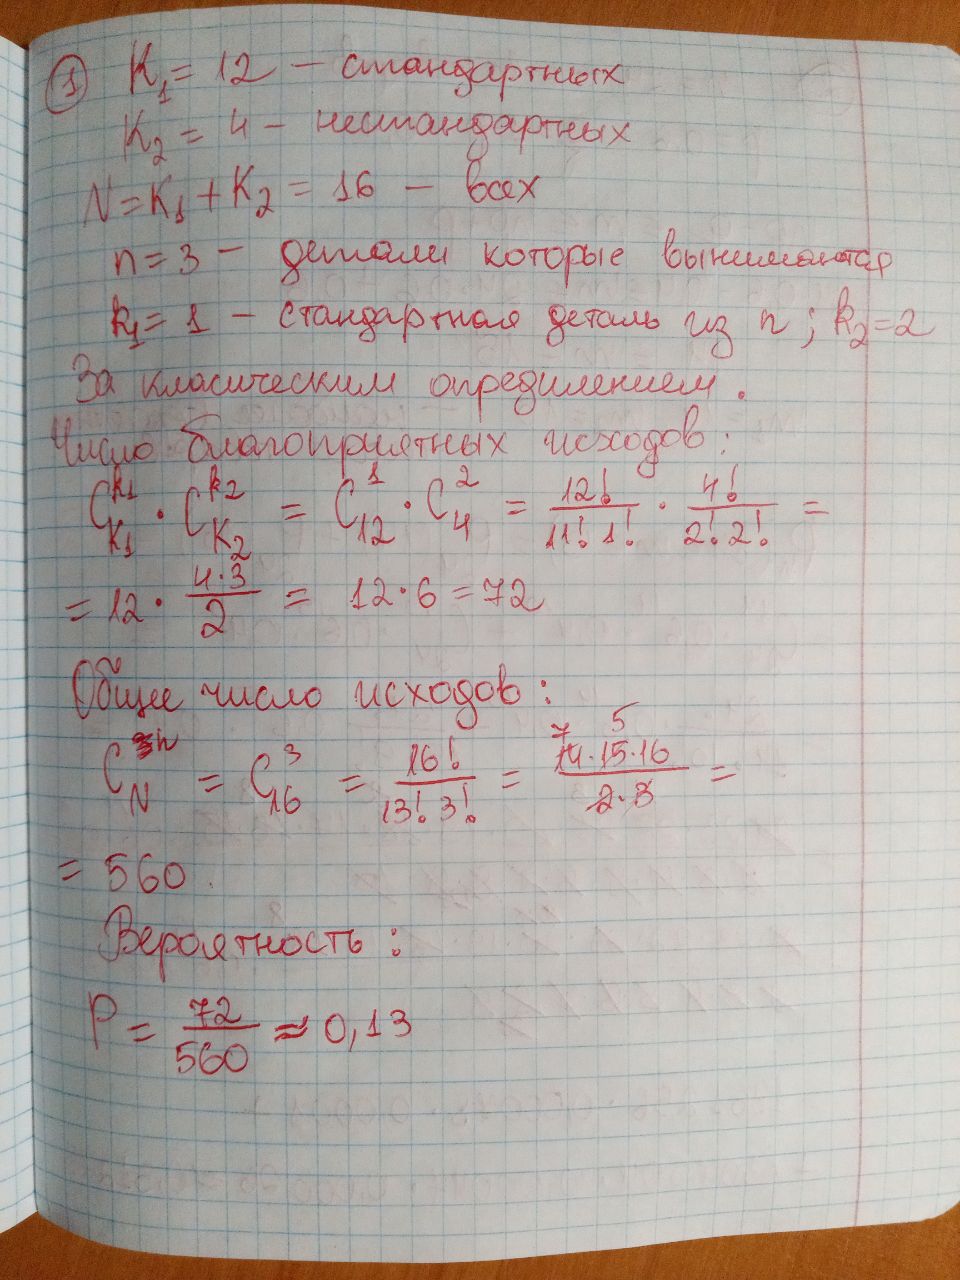 ① K₁ = 12 – стандартных
K₂ = 4 – нестандартных
N = K₁ + K₂ = 16 – всех
n = 3 – детали которые вынимаются
k₁ = 1 – стандартная деталь из n; k₂ = 2
За класическим опредилением.
Число благоприятных исходов:
C_{K₁}^{k₁} · C_{K₂}^{k₂} = C_{12}^{1} · C_{4}^{2} = 12!/(11! 1!) · 4!/(2! 2!) =
= 12 · (4·3)/2 = 12·6 = 72
Общее число исходов:
C_{N}^{n} = C_{16}^{3} = 16!/(13! 3!) = (14·15·16)/(2·3) = 7 5
= 560.
Вероятность:
P = 72/560 ≈ 0,13